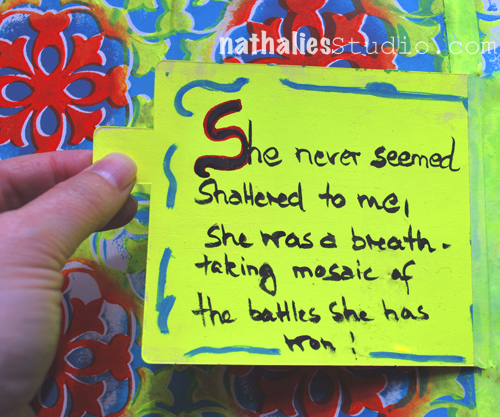 nathaliesstudio.com
She never seemed
Shattered to me,
She was a breath-
taking mosaic of
the battles She has
won!